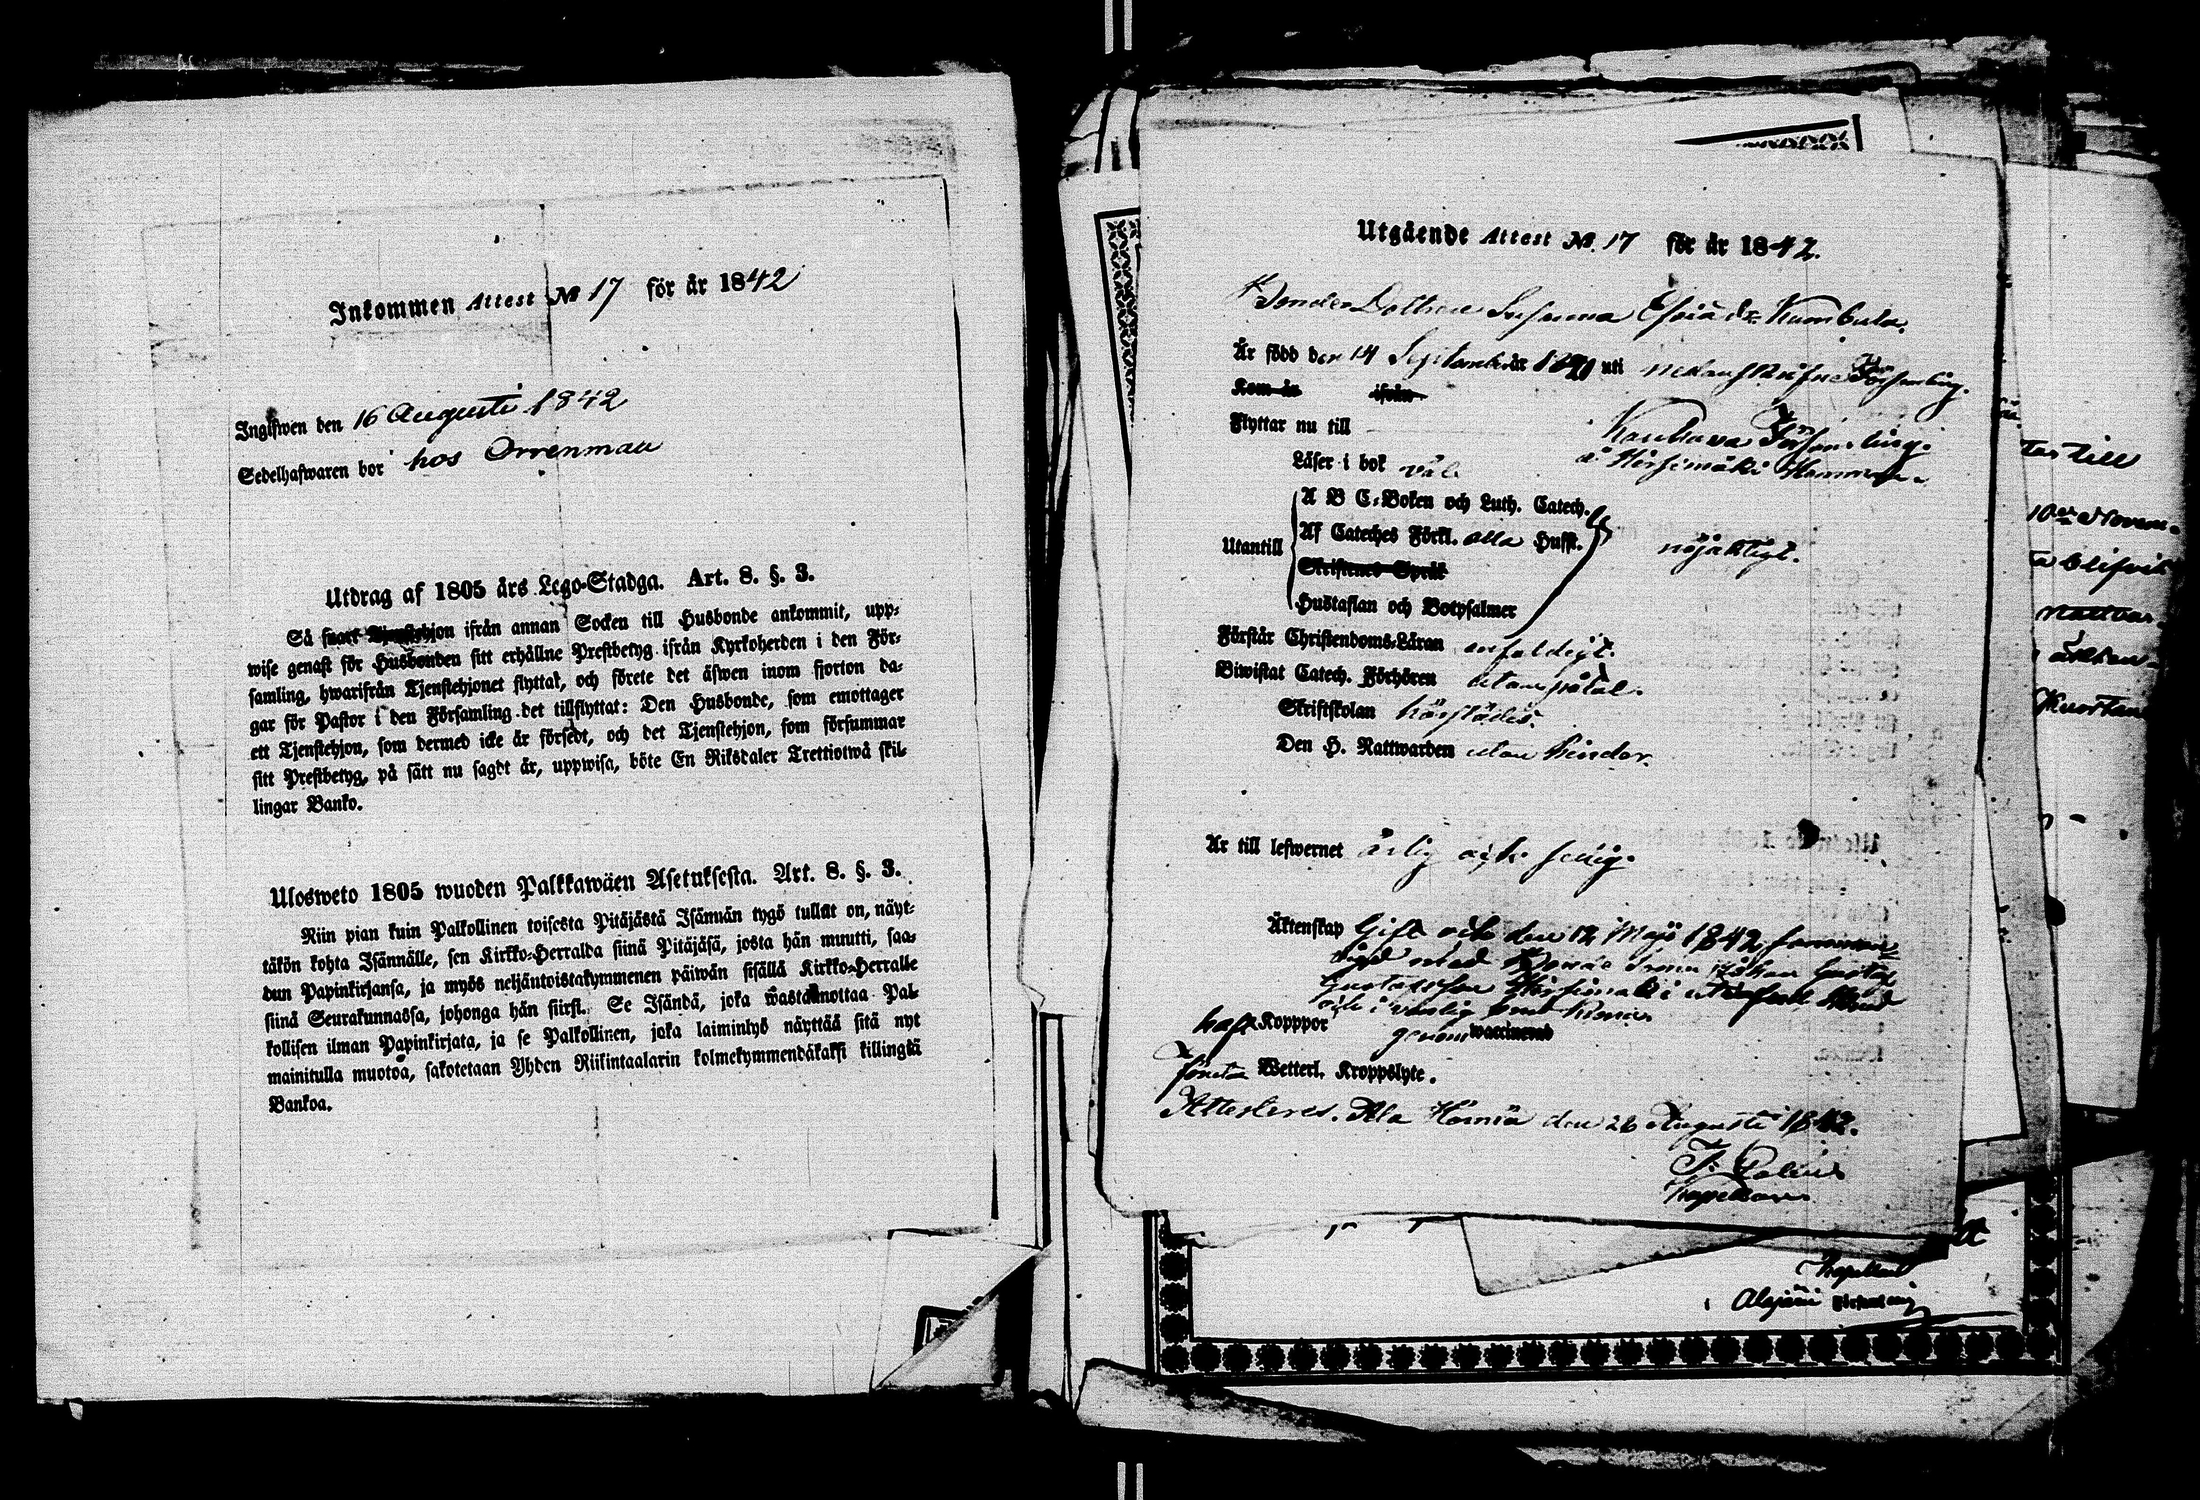 Inkommen Attest № 17 för år 1842
Ingifwen den 16 Augusti 1842
Sedelhafwaren bor hos Orrenmaa
Utdrag af 1805 års Lego-Stadga. Art. 8. §. 3.
Så snart Tjenstehjon ifrån annan Socken till Husbonde ankommit, upp-
wise genast för Husbonden sitt erhållne Prestbetyg ifrån Kyrkoherden i den För-
samling, hwarifrån Tjenstehjonet flyttat, och förete det äfwen inom fjorton da-
gar för Pastor i den Församling det tillflyttat: Den Husbonde, som emottager
ett Tjenstehjon, som dermed icke är försedt, och det Tjenstehjon, som försummar
sitt Prestbetyg, på sätt nu sagdt är, uppwisa, böte En Riksdaler Trettiotwå skil-
lingar Banko.
Ulosweto 1805 wuoden Palkkawäen Asetuksesta. Art. 8. §. 3.
Niin pian kuin Palkollinen toisesta Pitäjästä Isännän tygö tullut on, näyt-
täkön kohta Isännälle, sen Kirkko-Herralda siinä Pitäjäsä, josta hän muutti, saa-
dun Papinkirjansa, ja myös neljäntoistakymmenen päiwän sisällä Kirkko-Herralle
siinä Seurakunnassa, johonga hän siirsi. Se Isändä, joka wastaanottaa Pal-
kollisen ilman Papinkirjata, ja se Palkollinen, joka laiminlyö näyttää sitä nyt
mainitulla muotoa, sakotetaan Yhden Riikintaalarin kolmekymmendäkaksi killingiä
Bankoa.
Utgående Attest № 17 för år 1842.
Bonde Dottren Susanna Esaiä dr Kumbula.
Är född den 14 September år 18 uti Församling.
Kom år ifrån
Flyttar nu till Kauhava Församling.
å Hirsimäki Hemman.
Läser i bok väl
Utantill
A B C-Boken och Luth. Catech.
Af Cateches Förkl. alla Husf.
Skriftenes Språk
nöjaktigt.
Hustaflan och Botpsalmer
Förstår Christendoms-Läran enfaldigt.
Biwistat Catech. Förhören utan påtal.
Skriftskolan härstädes.
Den H. Nattwarden utan hinder.
Är till lefwernet ärlig och sedig.
Äktenskap Gift och den 12 Maji 1842 samman-
vigd med Bonde Sonen Johan Gustaf
Gustafsson Hirsimäki
och i
haft Kopppor genom waccinerad
Wetterl. Kroppslyte.
Attesteres. Ala Härmä den 26 Augusti 1842.
Kapellan.
Kapellan
i Alajärvi Församling
ter till
10de Novem-
ta blifvit
Nattvar-
äkten-
Kuortan